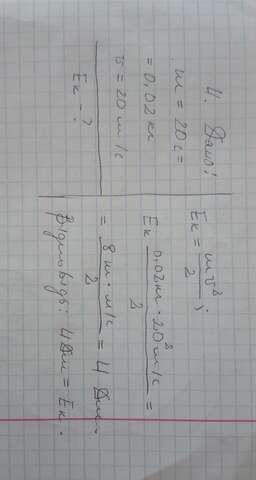 4. Дано:
m = 20г =
= 0,02 кг
v = 20 м/с
Eк - ?
Eк = mv²/2 ;
Eк 0,02кг · 20² м/с / 2 =
= 8 кг · м/с / 2 = 4 Дж.
Відповідь: 4Дж = Eк.